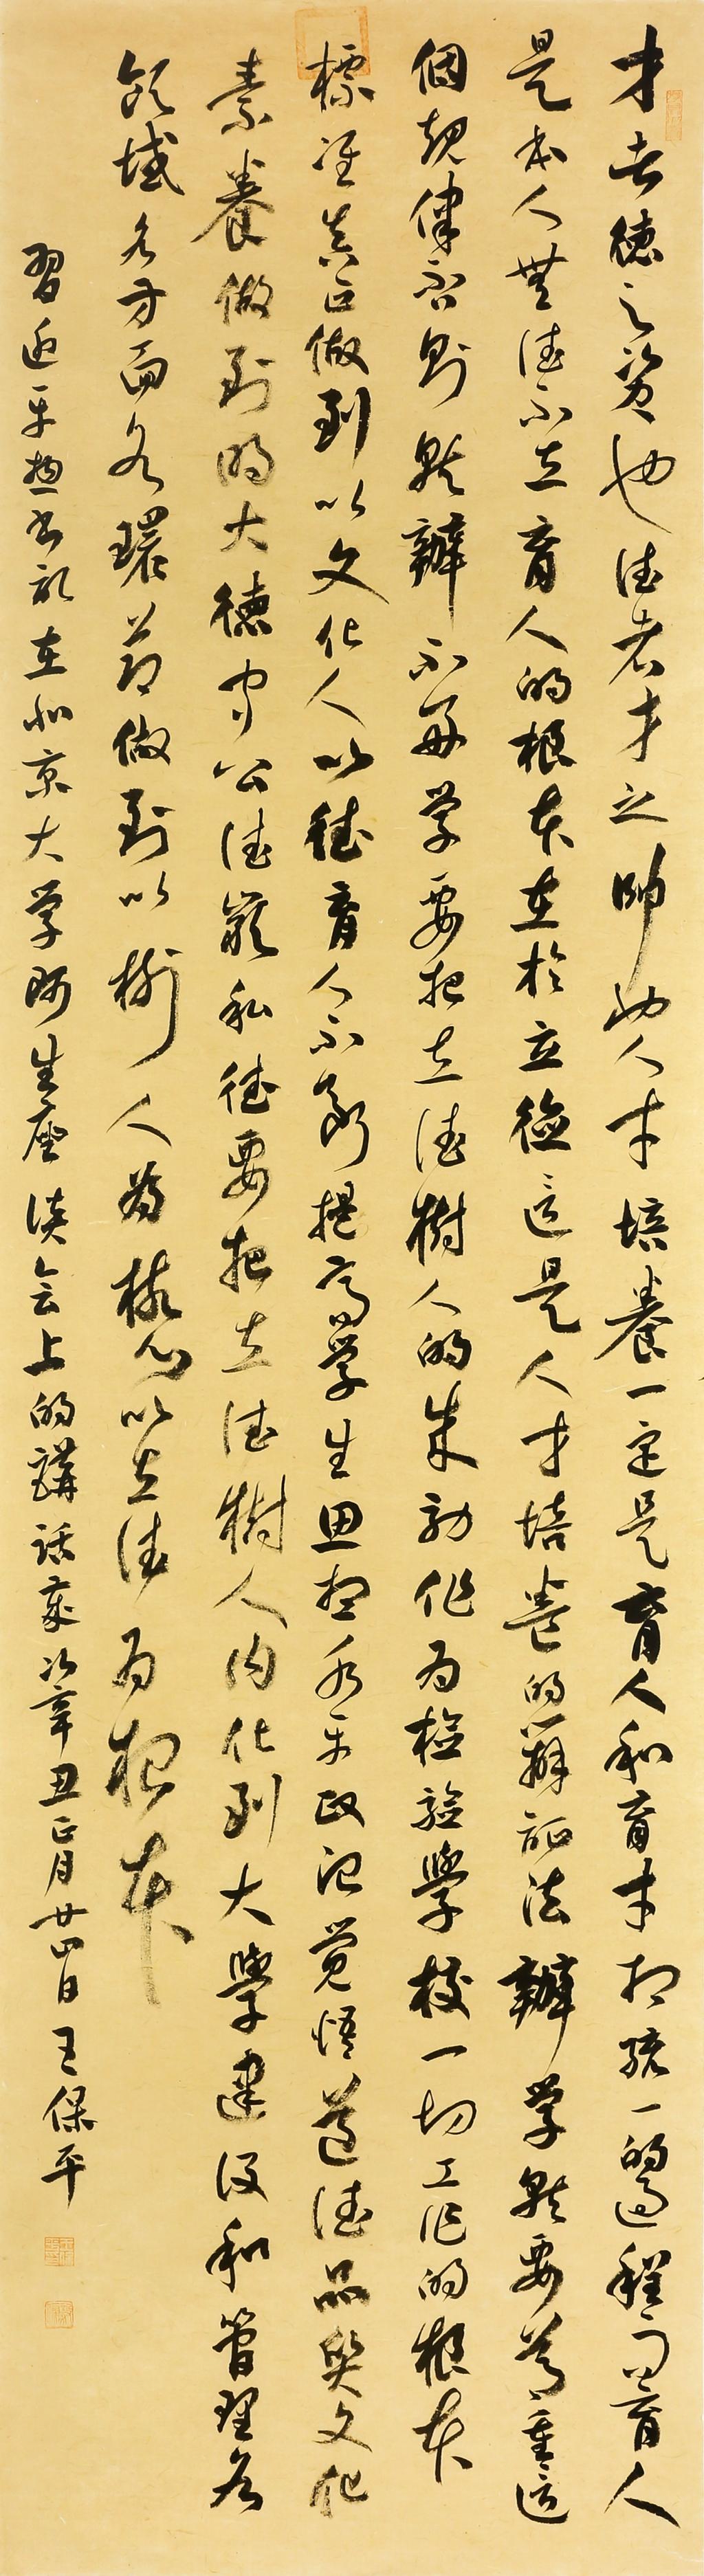 才者德之资也德者才之帥也人才培養一定是育人和育才相统一的過程而育人
是本人無德不立育人的根本在於立德這是人才培养的辩证法辦学就要尊重這
個規律否則就辦不好学要把立德樹人的成效作为检验學校一切工作的根本
標准真正做到以文化人以德育人不断提高学生思想水平政治觉悟道德品质文化
素養做到明大德守公德严私德要把立德樹人内化到大學建设和管理各
领域各方面各環节做到以樹人為核心以立德为根本
習近平总书记在北京大学师生座谈会上的講话 歲次辛丑正月廿四日王保平